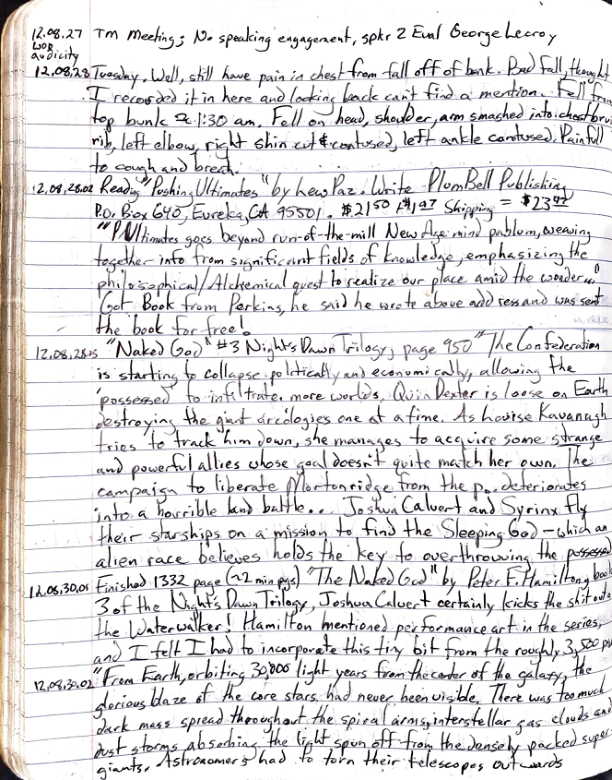 12.08.27 TM Meeting; No speaking engagement, spkr 2 Eval George Lecroy
WOR
audicity
12.08.28 Tuesday. Well, still have pain in chest from fall off of bunk. Bad fall, thought
I recorded it in here and looking back can't find a mention. Fell from
top bunk ≈ 1:30 am. Fell on head, shoulder, arm smashed into chest
rib, left elbow, right shin cut & contused, left ankle contused. Painful
to cough and breath.
12.08.28.02 Reading "Pushing Ultimates" by Lew Paz. Write PlomBell Publishing
P.O. Box 640, Eureka, CA 95501. $21.50 Shipping =
"P.Ultimates goes beyond run-of-the-mill New Age mind pablum, weaving
together into from significant fields of knowledge, emphasizing the
philosophical/Alchemical quest to realize our place amid the wonder..."
Got Book from Perkins, he said he wrote above address and was sent
the book for free!
12.08.28.15 "Naked God" #3 Night's Dawn Trilogy, page 950 "The Confederation
is starting to collapse politically and economically, allowing the
'possessed' to infiltrate more worlds. Quin Dexter is loose on Earth
destroying the giant arcologies one at a time. As Louise Kavanagh
tries to track him down, she manages to acquire some strange
and powerful allies whose goal doesn't quite match her own. The
campaign to liberate Mortonridge from the p. deteriorates
into a horrible land battle... Joshua Calvert and Syrinx fly
their starships on a mission to find the Sleeping God – which an
alien race believes holds the key to overthrowing the possessed
12.08.30.01 Finished 1332 page (≈2 min pgs) "The Naked God" by Peter F. Hamilton, book
3 of the Night's Dawn Trilogy, Joshua Calvert certainly kicks the shit out o
the Waterwalker! Hamilton mentioned performance art in the series,
and I felt I had to incorporate this tiny bit from the roughly 3,500
12.08.30.02 "From Earth, orbiting 30,000 light years from the center of the galaxy, the
glorious blaze of the core stars had never been visible. There was too much
dark mass spread throughout the spiral arms, interstellar gas clouds and
dust storms absorbing the light spun off from the densely packed super-
giants. Astronomers had to torn their telescopes outwards